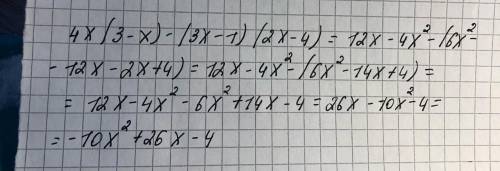 4x(3-x)-(3x-1)(2x-4)=12x-4x²-(6x²-
-12x-2x+4)=12x-4x²-(6x²-14x+4)=
=12x-4x²-6x²+14x-4=26x-10x²-4=
=-10x²+26x-4